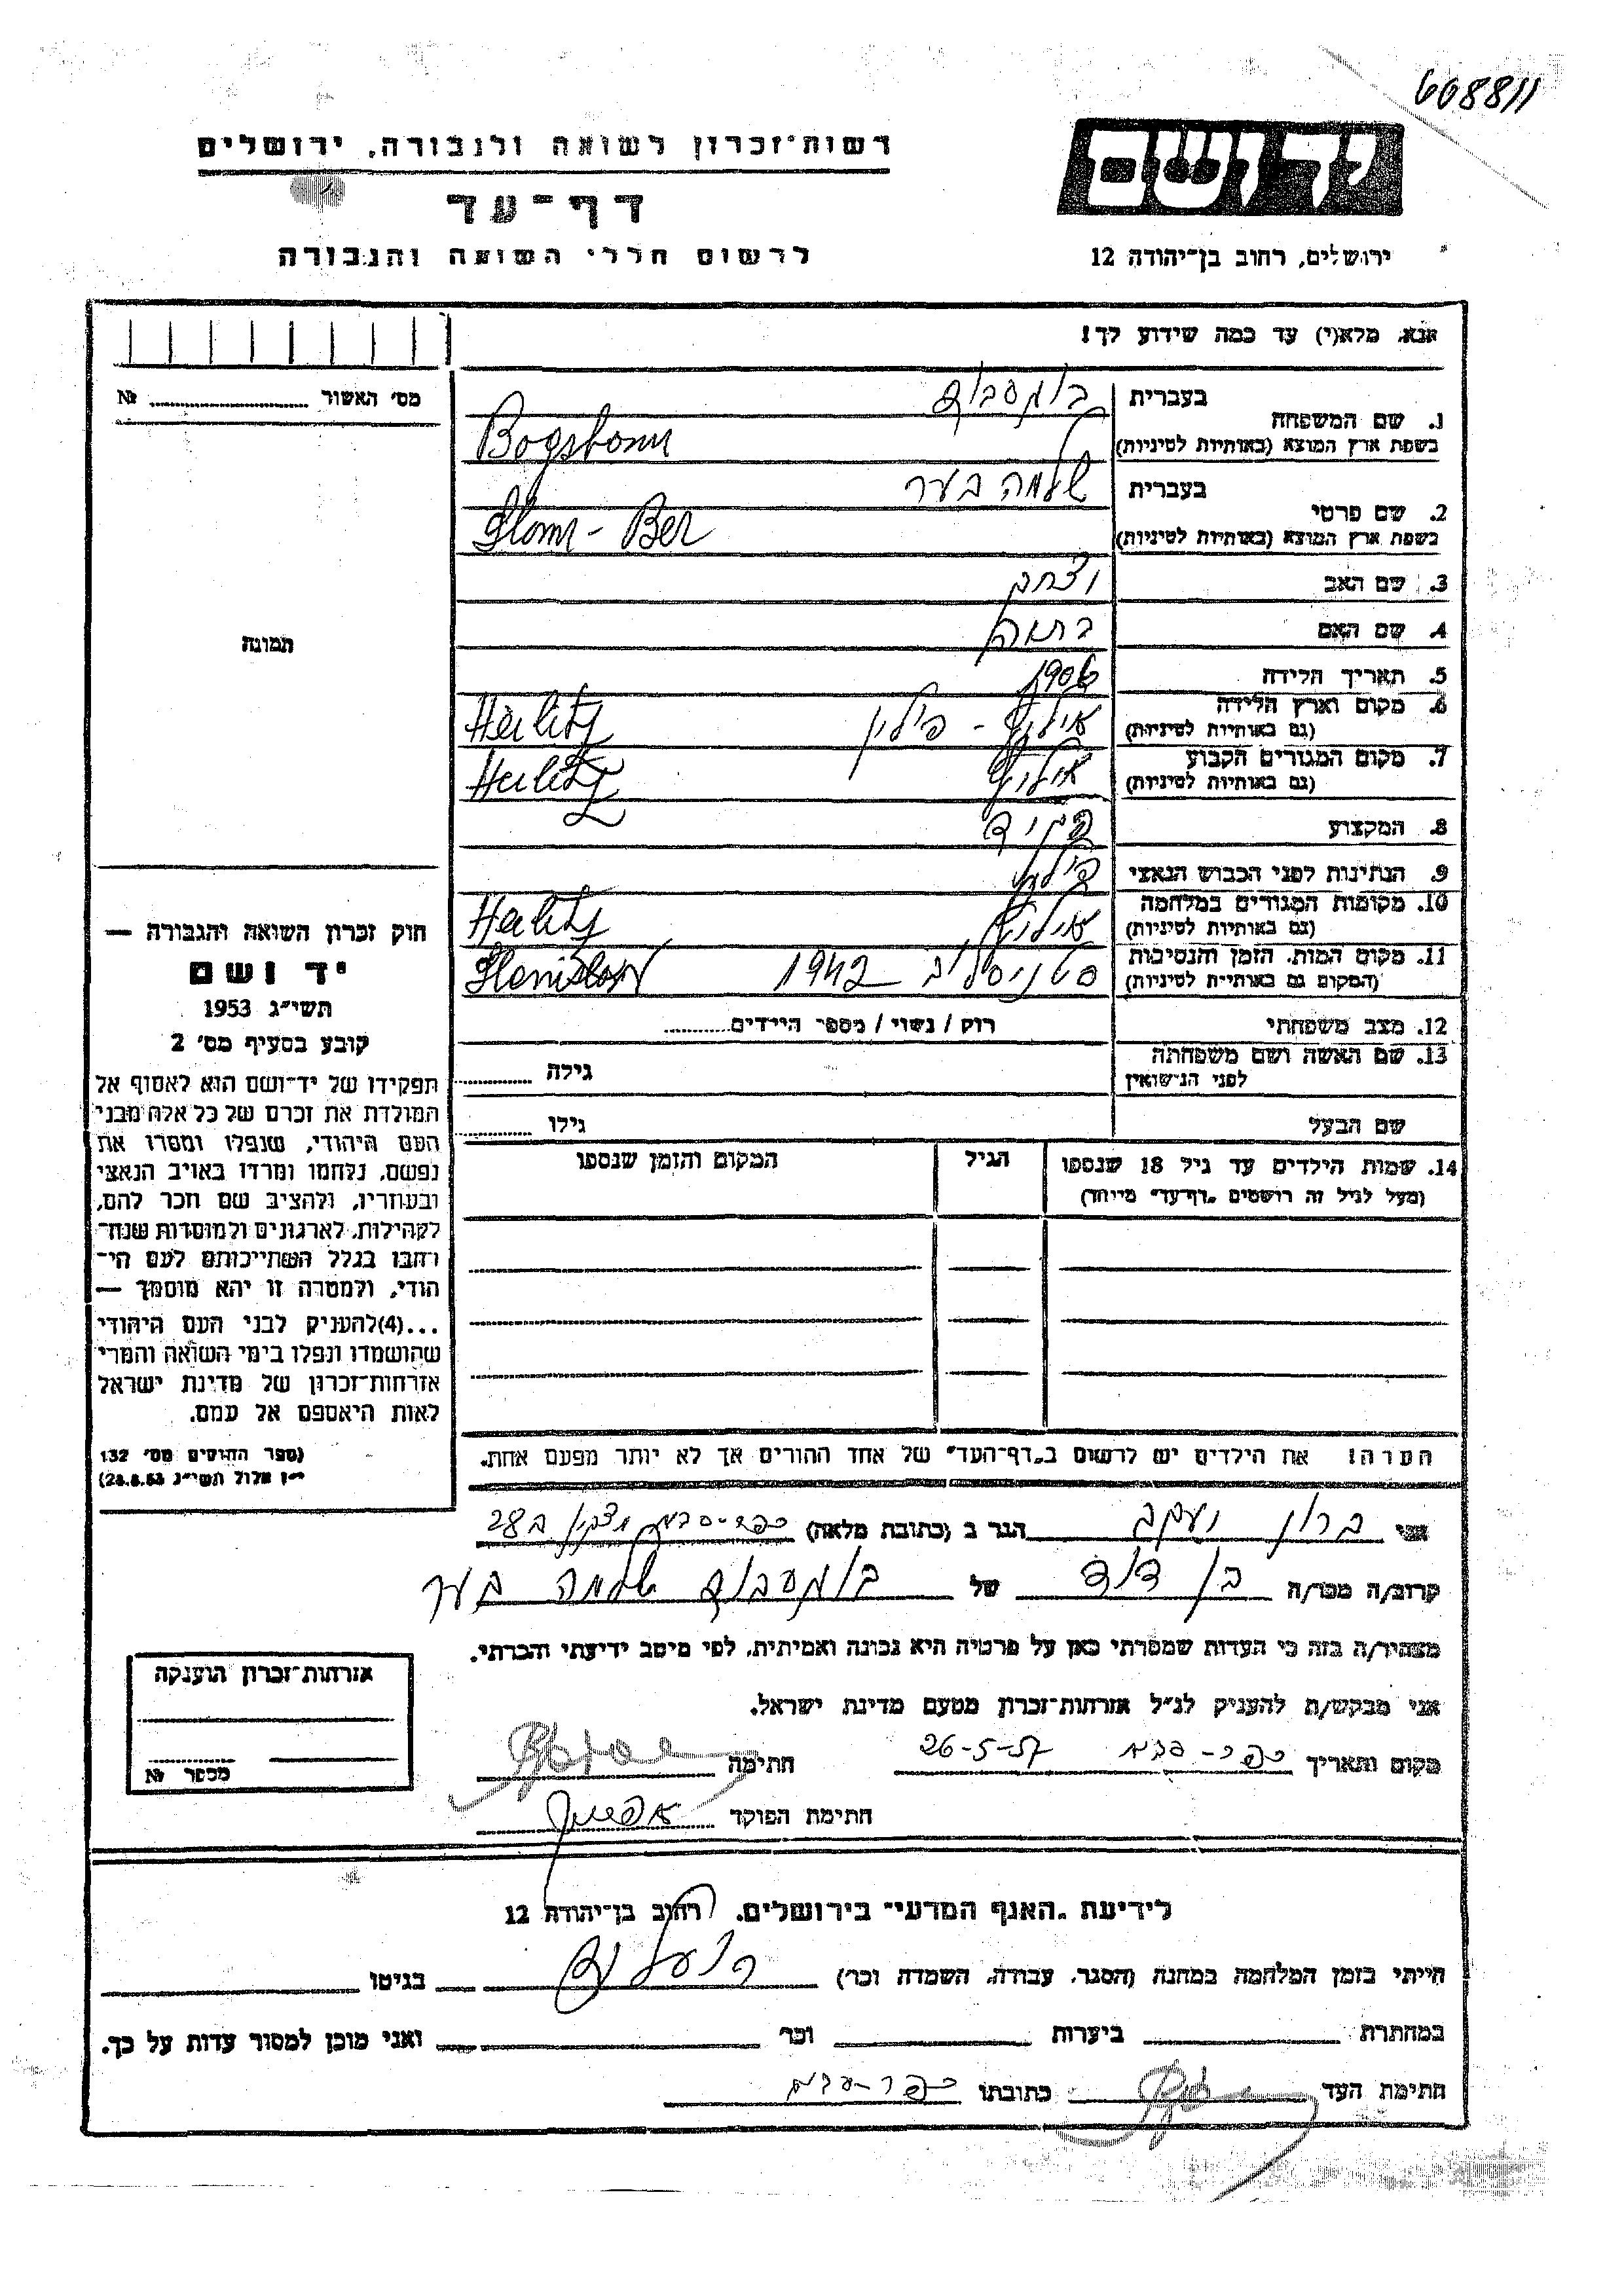 608811
רשות־זכרון לשואה ולגבורה, ירושלים
יד ושם
דף־עד
לרשום חללי השואה והגבורה
ירושלים, רחוב בן־יהודה 12
אנא, מלא(י) עד כמה שידוע לך!
מס׳ האשור № ........
1. שם המשפחה
בעברית
בשפת ארץ המוצא (באותיות לטיניות)
2. שם פרטי
בעברית שלמה בער
בשפת ארץ המוצא (באותיות לטיניות) Ber
3. שם האב
4. שם האם
5. תאריך הלידה 1906
6. מקום וארץ הלידה
(גם באותיות לטיניות)
7. מקום המגורים הקבוע
(גם באותיות לטיניות)
8. המקצוע פקיד
9. הנתינות לפני הכבוש הנאצי
10. מקומות המגורים במלחמה
(גם באותיות לטיניות)
11. מקום המות, הזמן והנסיבות 1942
(המקום גם באותיות לטיניות)
12. מצב משפחתי רוק / נשוי / מספר הילדים........
13. שם האשה ושם משפחתה גילה ........
לפני הנישואין
שם הבעל גילו ........
14. שמות הילדים עד גיל 18 שנספו הגיל המקום והזמן שנספו
(מעל לגיל זה רושמים „דף־עד״ מיוחד)
הערה! את הילדים יש לרשום ב„דף־העד״ של אחד ההורים אך לא יותר מפעם אחת.
תמונה
חוק זכרון השואה והגבורה —
יד ושם
תשי״ג 1953
קובע בסעיף מס׳ 2
תפקידו של יד־ושם הוא לאסוף אל
המולדת את זכרם של כל אלה מבני
העם היהודי, שנפלו ומסרו את
נפשם, נלחמו ומרדו באויב הנאצי
ובעוזריו, ולהציב שם וזכר להם,
לקהילות, לארגונים ולמוסדות שנח־
רבו בגלל השתייכותם לעם הי־
הודי, ולמטרה זו יהא מוסמך —
...(4)להעניק לבני העם היהודי
שהושמדו ונפלו בימי השואה והמרי
אזרחות־זכרון של מדינת ישראל
לאות היאספם אל עמם.
(ספר החוקים מס׳ 132
י״ז אלול תשי״ג 28.8.53)
אני ברון יעקב הגר ב (כתובת מלאה) כפר-סבא
קרוב/ה מכר/ה בן דוד של שלמה בער
מצהיר/ה בזה כי העדות שמסרתי כאן על פרטיה היא נכונה ואמיתית, לפי מיטב ידיעתי והכרתי.
אני מבקש/ת להעניק לנ״ל אזרחות־זכרון מטעם מדינת ישראל.
מקום ותאריך כפר-סבא 26-5-57 חתימה
חתימת הפוקד
אזרחות־זכרון הוענקה
מספר №
לידיעת „האגף המדעי״ בירושלים, רחוב בן־יהודה 12
הייתי בזמן המלחמה במחנה (הסגר, עבודה, השמדה וכר) בגיטו
במחתרת ביערות וכר ואני מוכן למסור עדות על כך.
חתימת העד כתובתו כפר-סבא